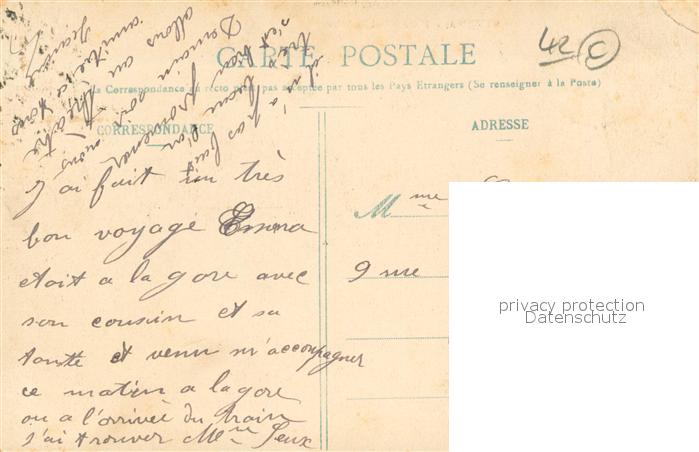 CARTE POSTALE
42 C
la Correspondance au recto n'est pas acceptée par tous les Pays Etrangers (Se renseigner à la Poste)
CORRESPONDANCE
ADRESSE
J'ai fait un très
bon voyage Emma
etait a la gare avec
son cousin et sa
tante et venu m'accompagner
ce matin a la gare
ou a l'arrivée du train
j'ai trouver Mme
il n'a pas
très
n'est
Demain soir nous
allons au théâtre
amitiés
Mme
9 rue
privacy protection
Datenschutz